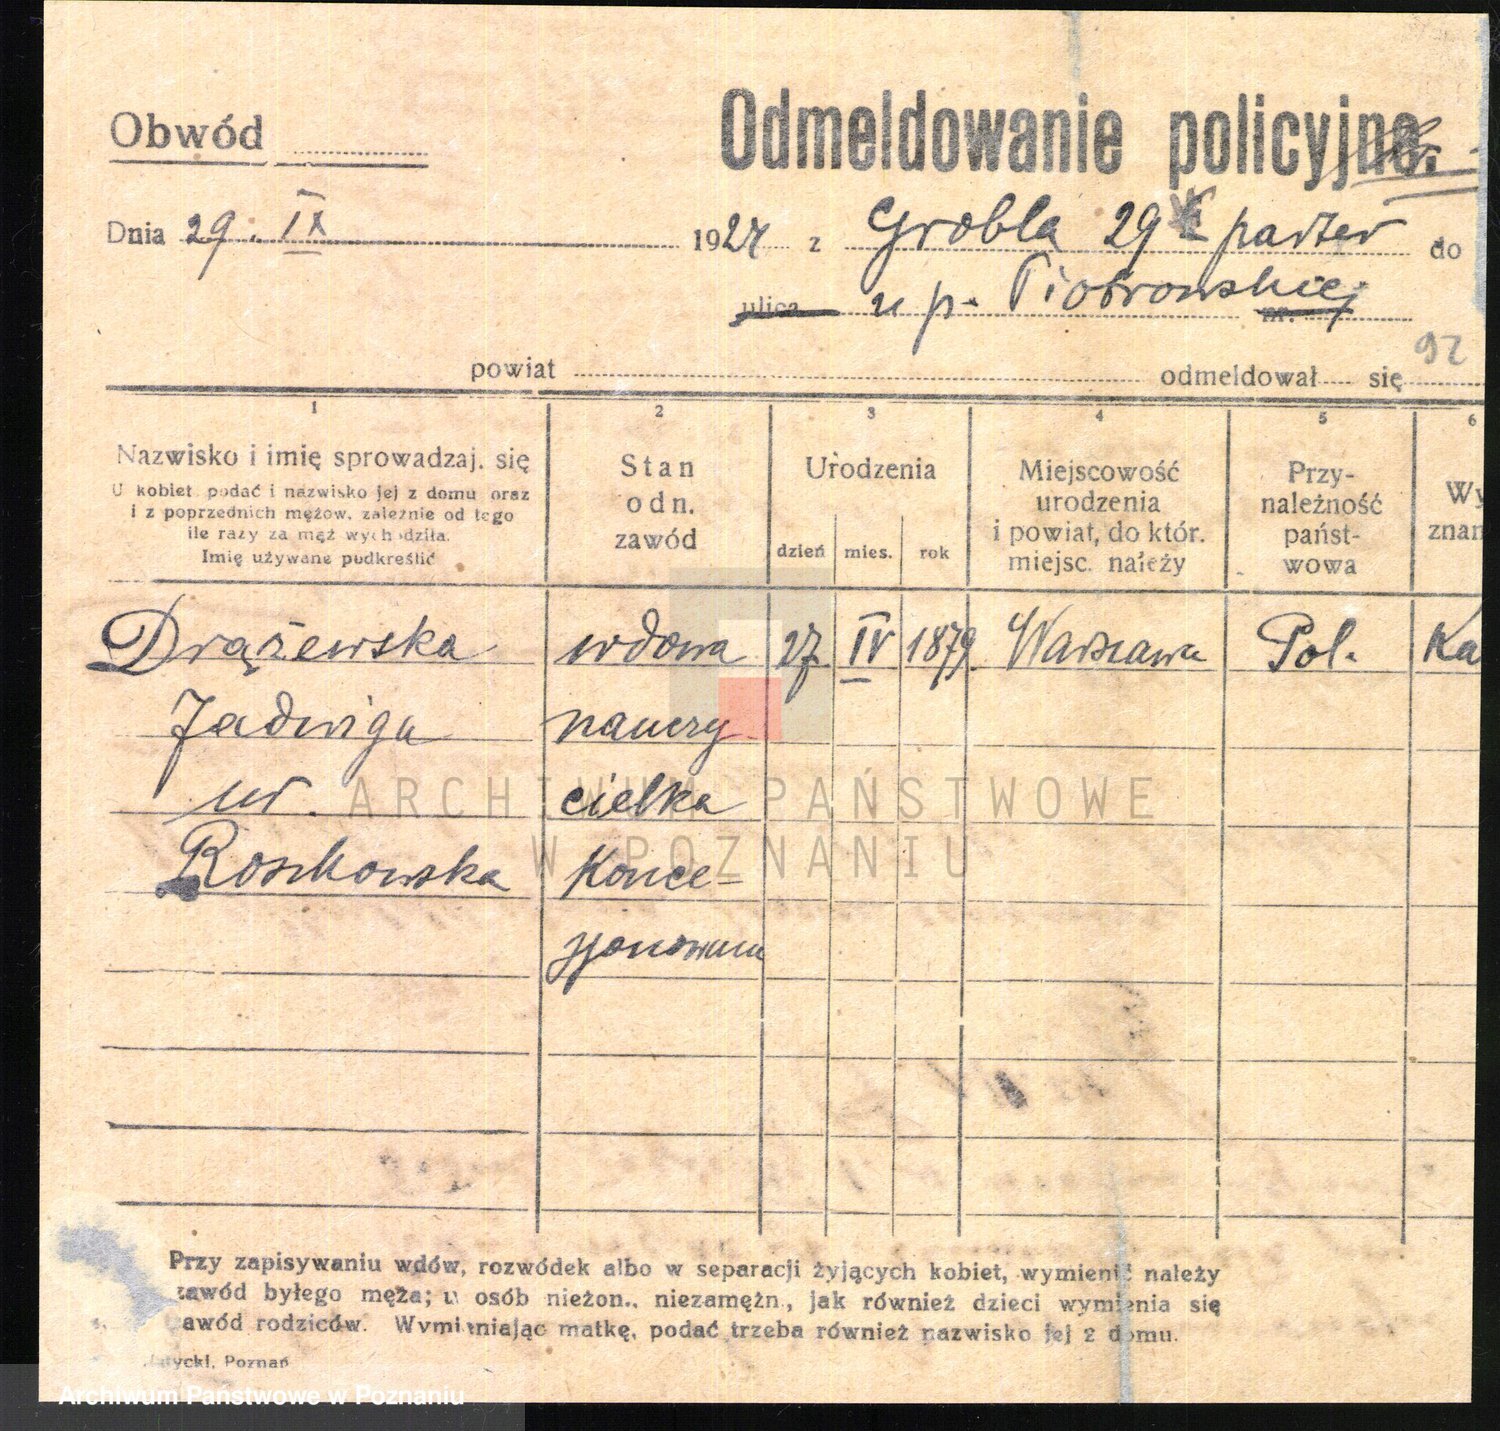 Obwód
Odmeldowanie policyjne.
Dnia 29. IX 1924 z Grobla 29 parter do
ulica u p. Piotrowskiej nr.
92
powiat odmeldował się
1 2 3 4 5 6
Nazwisko i imię sprowadzaj. się
U kobiet podać i nazwisko jej z domu oraz
i z poprzednich mężow, zależnie od tego
ile razy za mąż wychodziła.
Imię używane podkreślić
Stan
odn.
zawód
Urodzenia
dzień mies. rok
Miejscowość
urodzenia
i powiat, do któr.
miejsc. należy
Przy-
należność
państ-
wowa
Wy
znan
Drążewska wdowa 27 IV 1879 Warszawa Pol. Ka
Jadwiga nauczy
ur. cielka
Roszkowska konce=
sjonowana
ARCHIWUM PAŃSTWOWE
W POZNANIU
Przy zapisywaniu wdów, rozwódek albo w separacji żyjących kobiet, wymienić należy
zawód byłego męża; u osób nieżon., niezamężn., jak również dzieci wymienia się
zawód rodziców. Wymieniając matkę, podać trzeba również nazwisko jej z domu.
Poznań
Archiwum Państwowe w Poznaniu